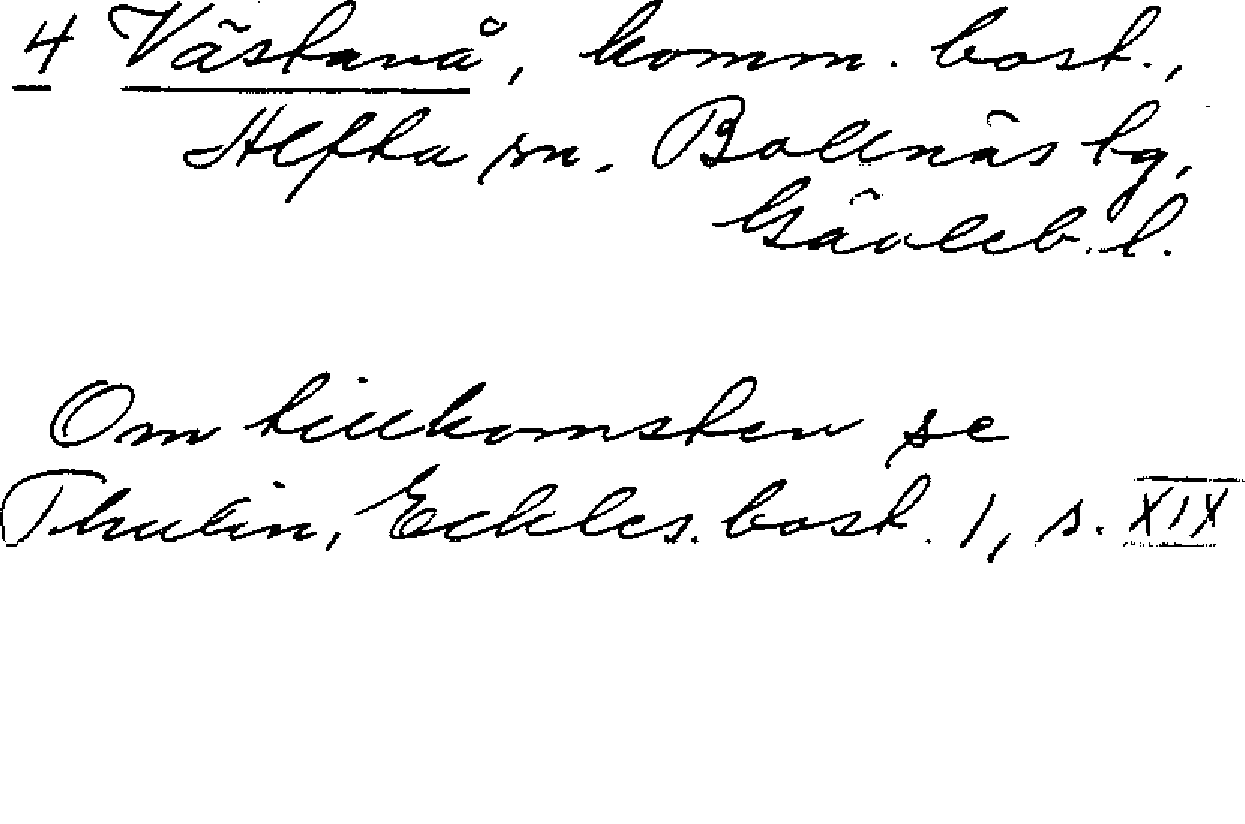 4 Västanå, komm. bost.,
Alfta sn. Bollnäs fg,
Gävleb. l.
Om tillkomsten se
Thulin, Eckles. bost. 1, s. XIX